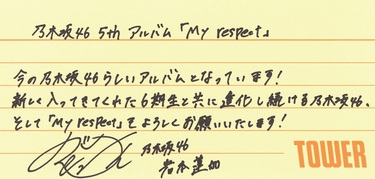 乃木坂46 5th アルバム「My respect」
今の乃木坂46らしいアルバムとなっています!
新しく入ってきてくれた6期生と共に進化し続ける乃木坂46、
そして「My respect」をよろしくお願いいたします!
乃木坂46
岩本蓮加
TOWER